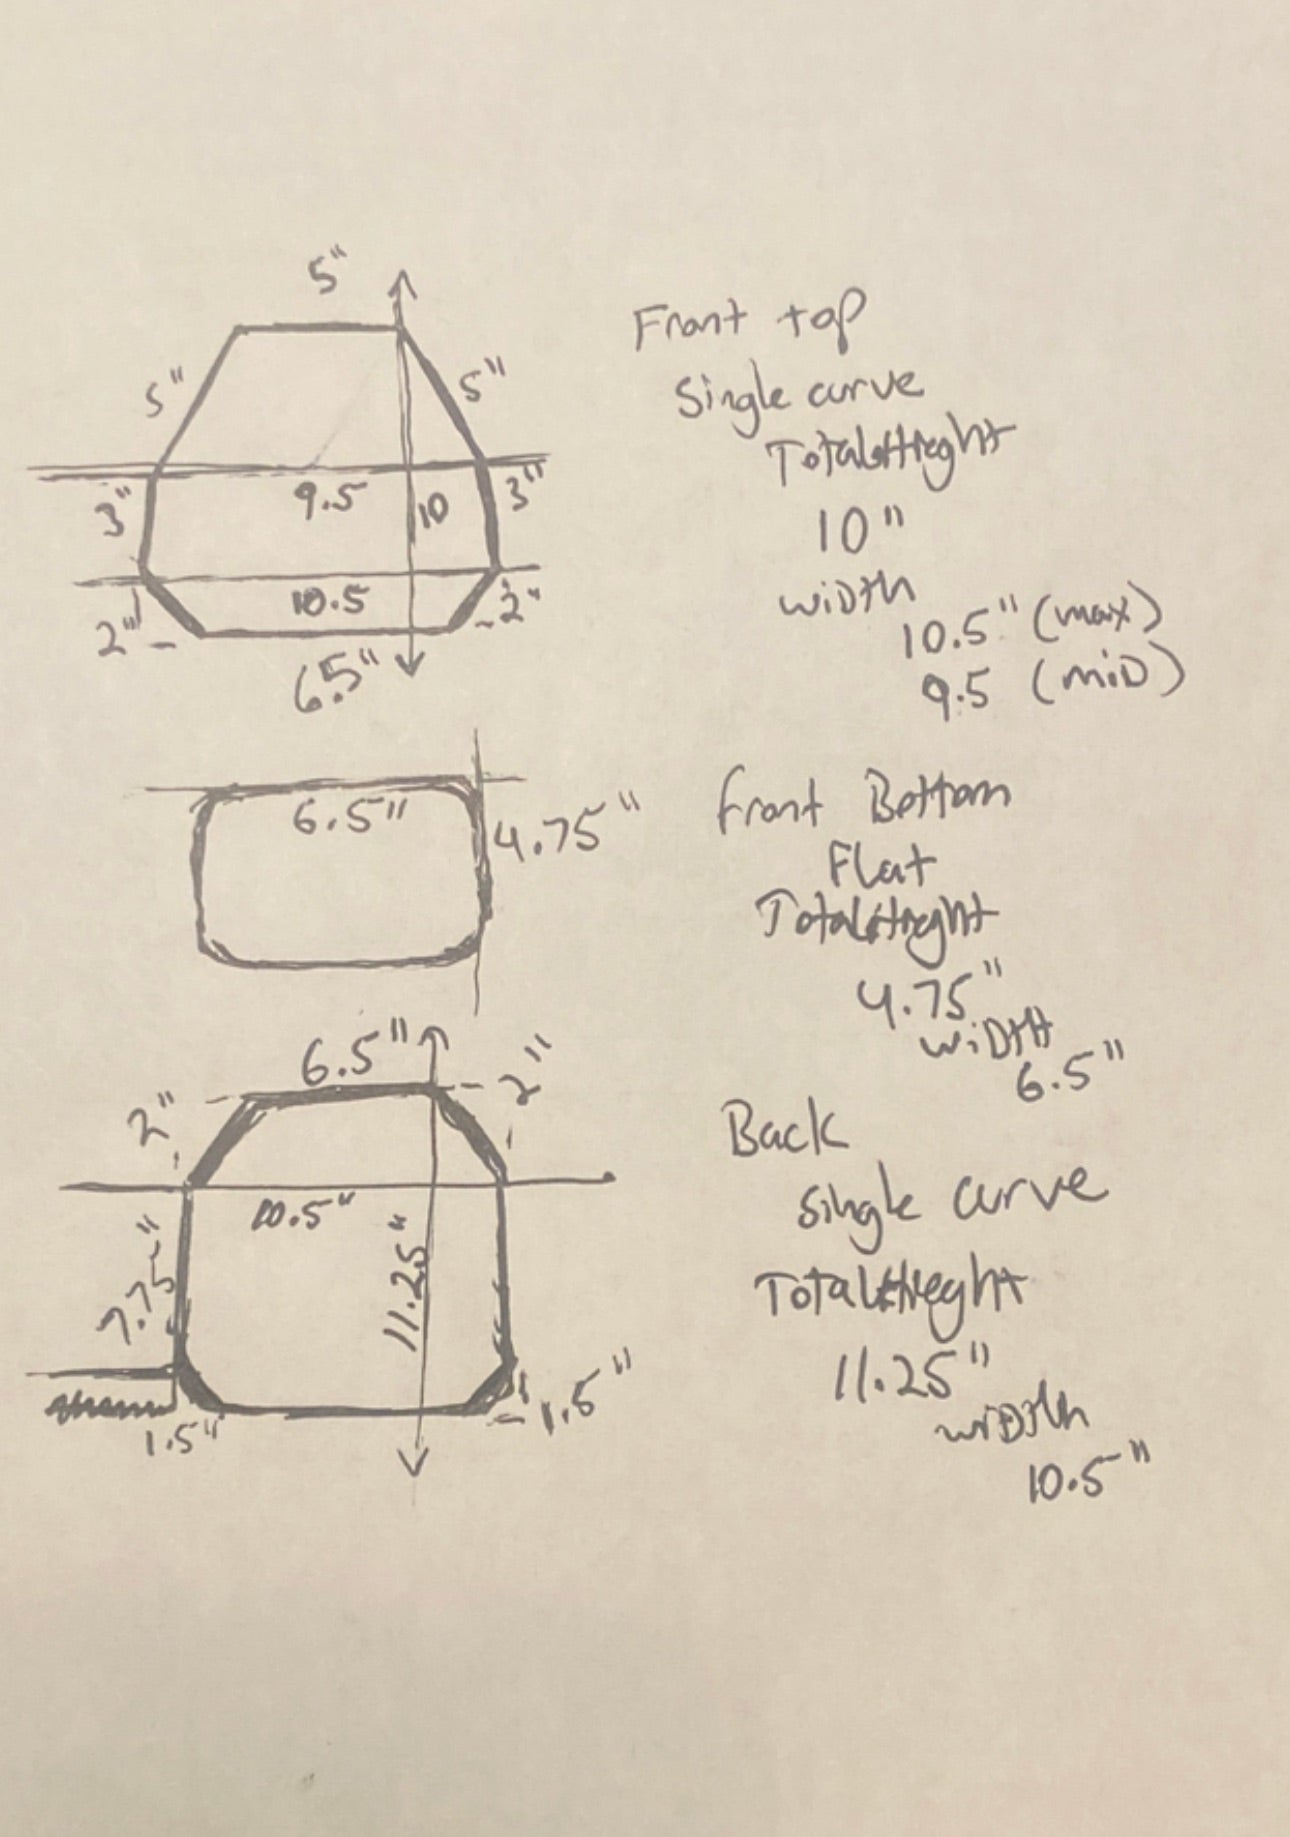 5"
5"
5"
9.5
10
3"
3"
10.5
2"
2"
6.5"
Front top
Single curve
Total Height
10"
WiDth
10.5" (max)
9.5 (miD)
6.5"
4.75"
front Bottom
Flat
Total Height
4.75"
WiDtH
6.5"
6.5"
2"
2"
10.5"
7.75"
11.25"
1.5"
1.5"
Back
single curve
Total Height
11.25"
WiDth
10.5"